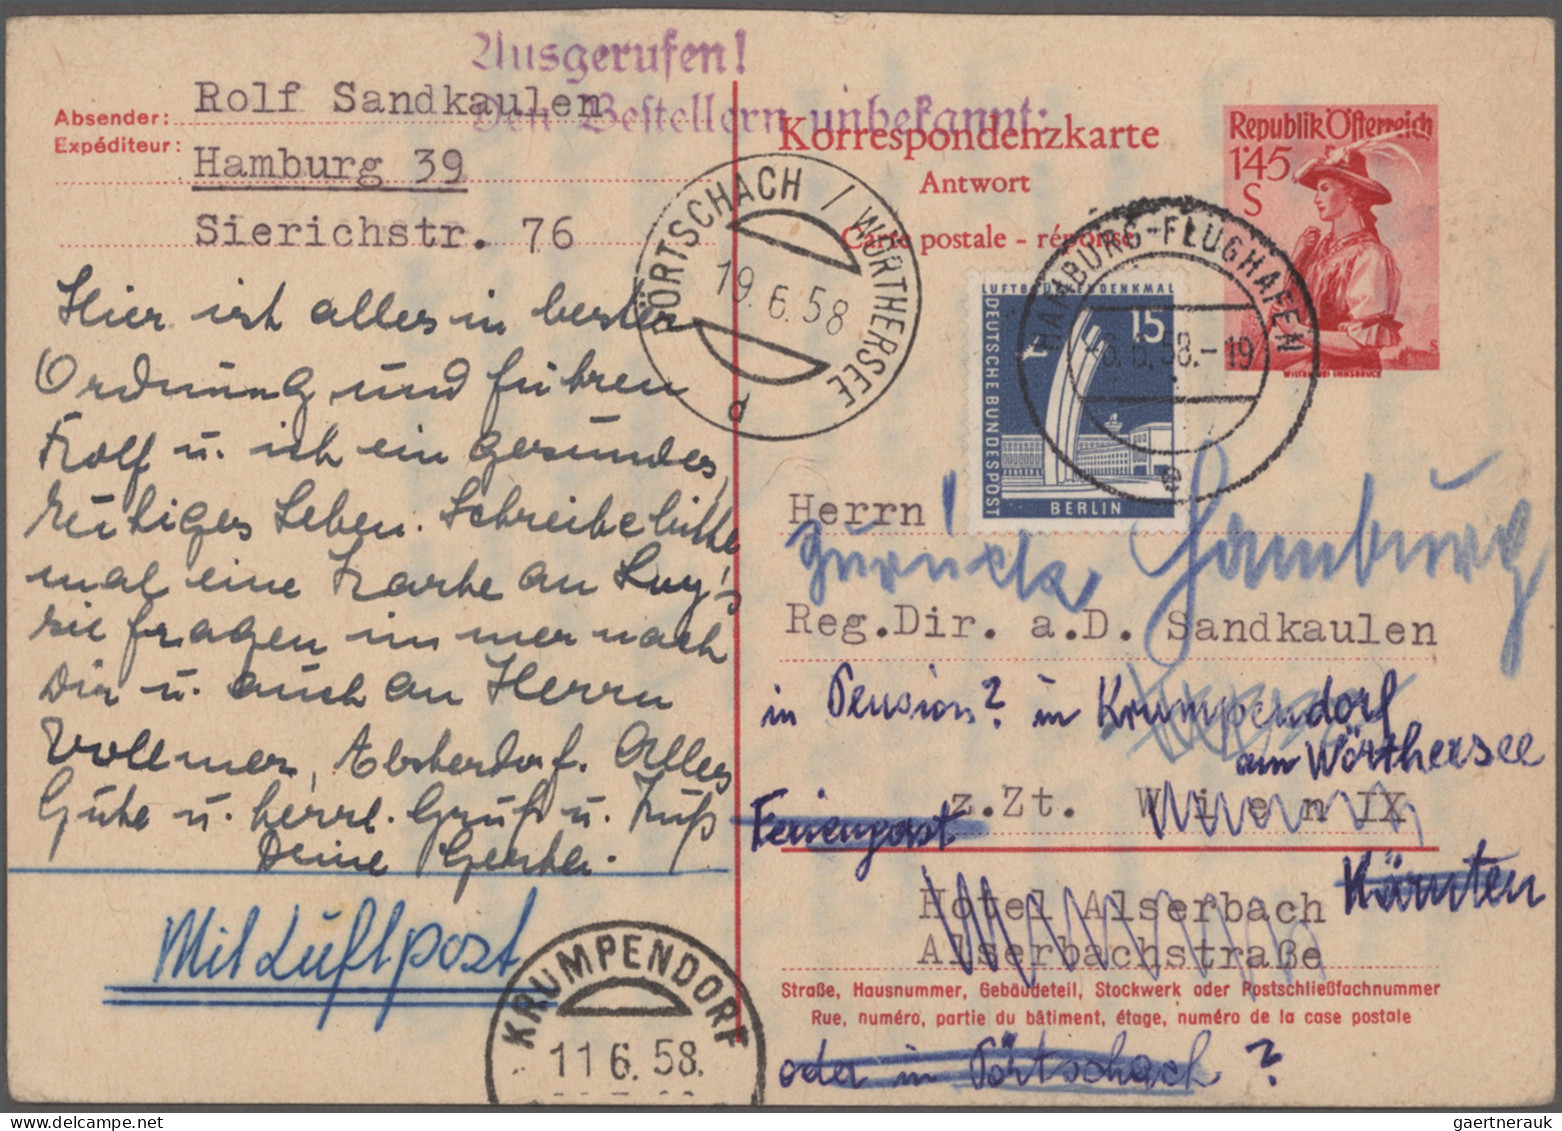 Ausgerufen!
Den Bestellern unbekannt:
Absender: Rolf Sandkaulen
Expéditeur: Hamburg 39
Sierichstr. 76
Hier ist alles in bester
Ordnung und führen
Rolf u. ich ein gesundes,
ruhiges Leben. Schreibe bitte
mal eine Karte an Luy's
sie fragen immer nach
Dir u. auch an Herrn
Vollmer, Alsterdorf. Alles
Gute u. herzl. Gruß u. Kuß
Deine Gerta.
Mit Luftpost
Korrespondenzkarte
Antwort
Carte postale - réponse
Republik Österreich
1.45
S
WILTEN BEI INNSBRUCK
PÖRTSCHACH / WÖRTHERSEE
19.6.58
d
LUFTBRÜCKENDENKMAL
15
DEUTSCHE BUNDESPOST
BERLIN
HAMBURG-FLUGHAFEN
6.58.-19
e
Herrn
Zurück Hamburg
Reg.Dir. a.D. Sandkaulen
in Pension? in Krumpendorf
am Wörthersee
z.Zt. Wien IX
Feriengast
Hotel Alserbach
Kärnten
Alserbachstraße
Straße, Hausnummer, Gebäudeteil, Stockwerk oder Postschließfachnummer
Rue, numéro, partie du bâtiment, étage, numéro de la case postale
oder in Pörtschach ?
KRUMPENDORF
11 6.58.
gaertnerauk